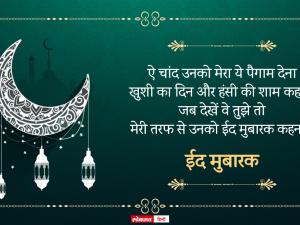 ऐ चांद उनको मेरा ये पैगाम देना
खुशी का दिन और हंसी की शाम कह
जब देखें वे तुझे तो
मेरी तरफ से उनको ईद मुबारक कहन
ईद मुबारक
लोकमत हिन्दी